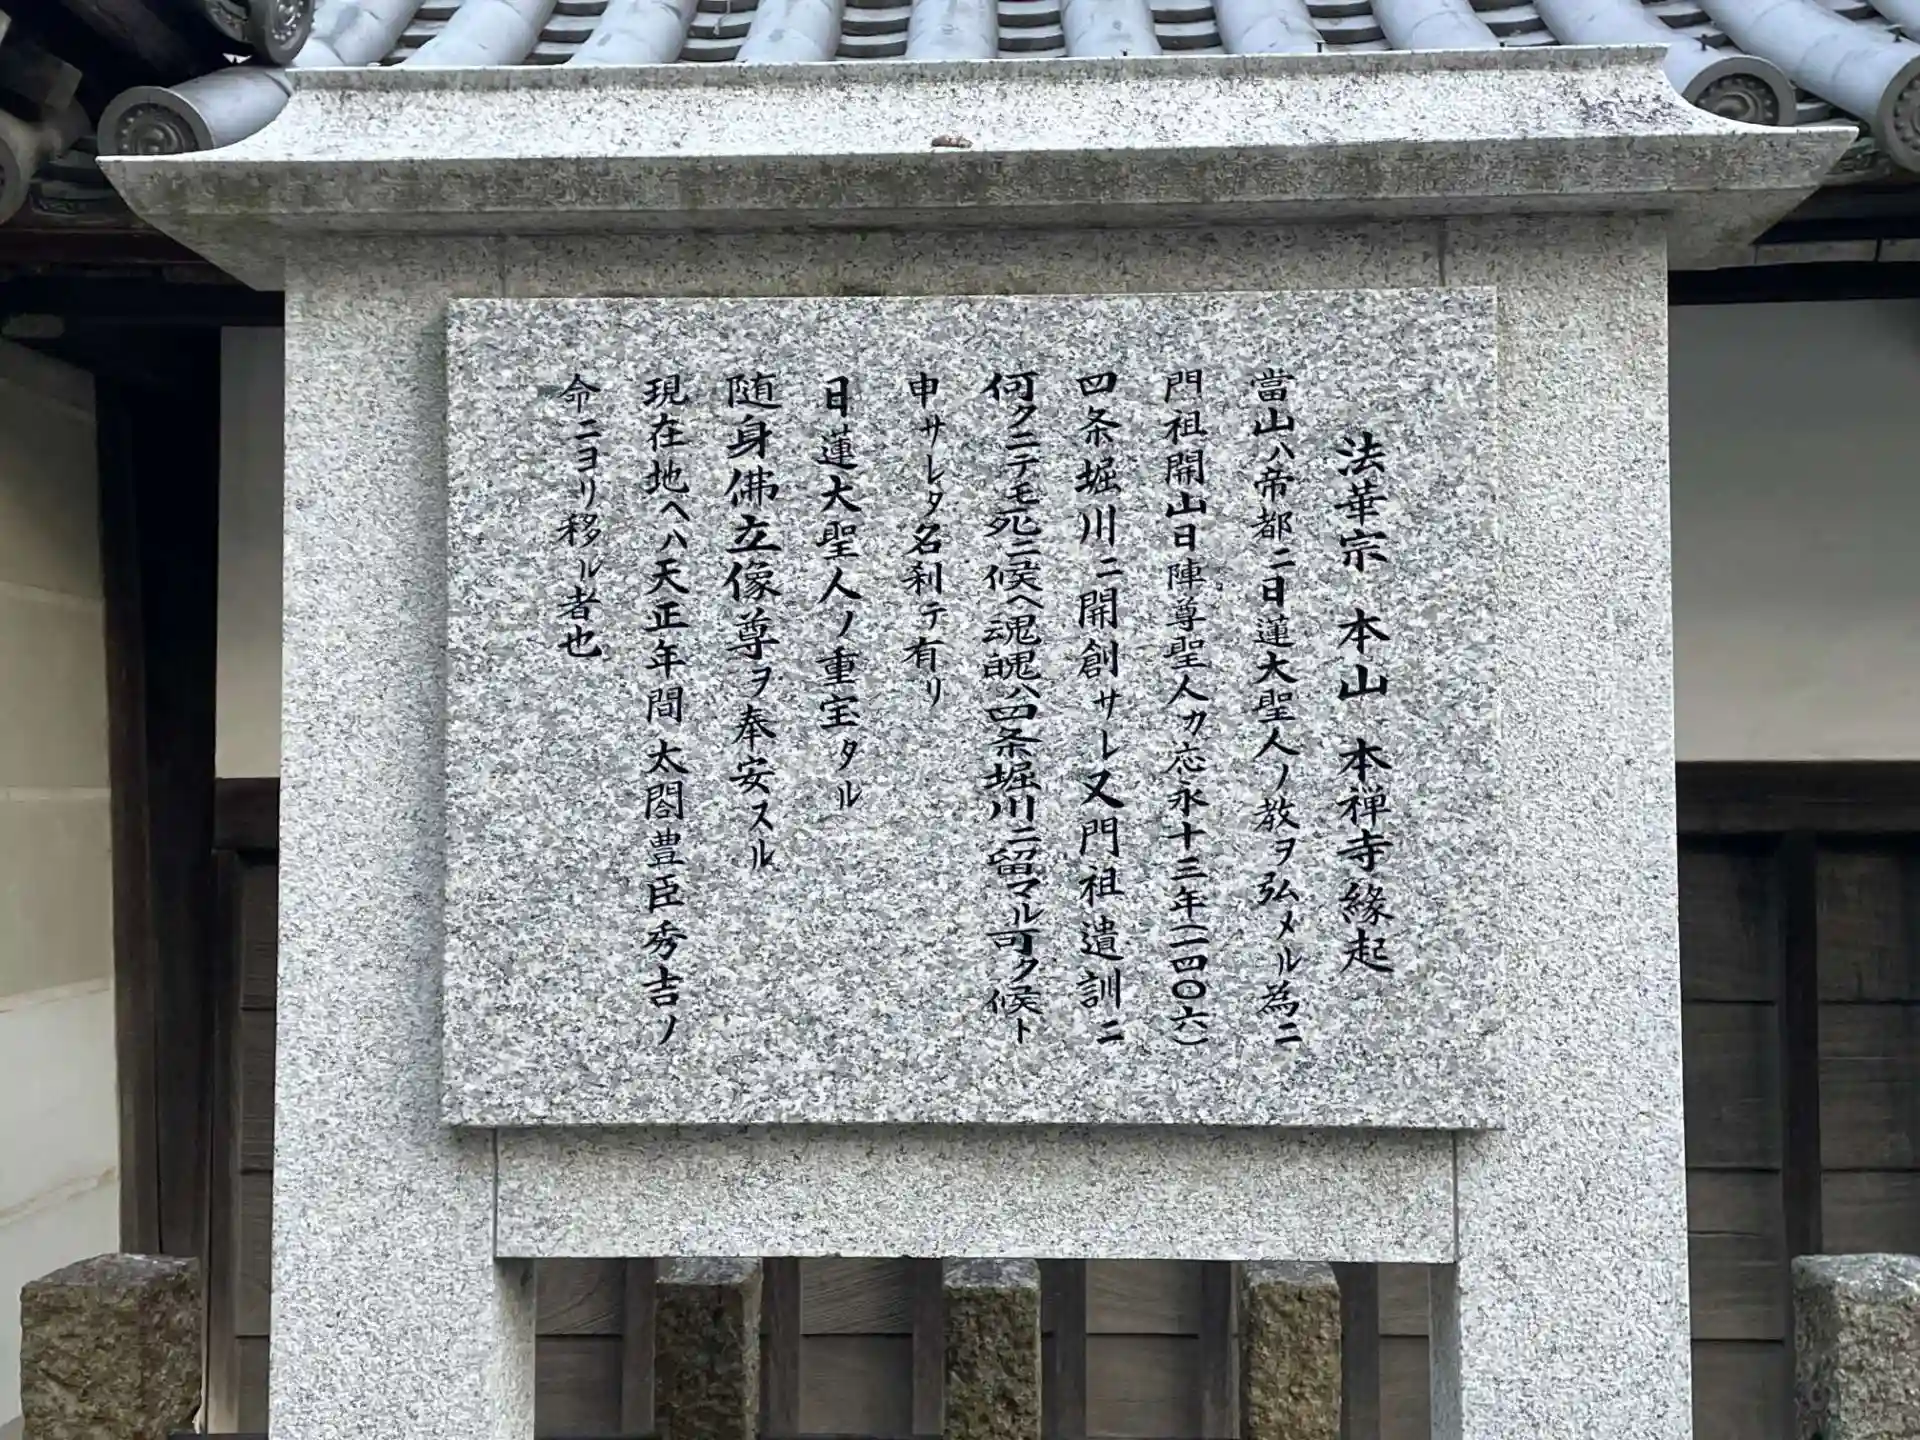 法華宗 本山 本禅寺縁起
當山ハ帝都ニ日蓮大聖人ノ教ヲ弘メル為ニ
門祖開山日陣尊聖人カ応永十三年(一四〇六)
四条堀川ニ開創サレ又門祖遺訓ニ
何クニテモ死ニ候ヘ魂魄ハ四条堀川ニ留マル可ク候ト
申サレタ名刹テ有リ
日蓮大聖人ノ重宝タル
随身佛立像尊ヲ奉安スル
現在地ヘハ天正年間太閤豊臣秀吉ノ
命ニヨリ移ル者也